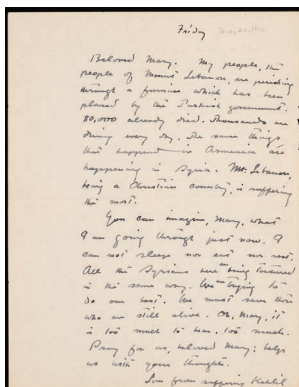 Friday
Beloved Mary. My people, the
people of Mount Lebanon, are perishing
through a famine which has been
planned by the Turkish government.
80,000 already died. Thousands are
dying every day. The same things
that happened in Armenia are
happening in Syria. Mt. Lebanon,
being a Christian country, is suffering
the most.
You can imagine, Mary, what
I am going through just now. I
can not sleep nor eat nor rest.
All the Syrians here are being tortured
in the same way. We are trying to
do our best. We must save those
who are still alive. Oh, Mary, it
is too much to bear, too much.
Pray for us, beloved Mary; help
us with your thoughts.
Love from suffering Kahlil